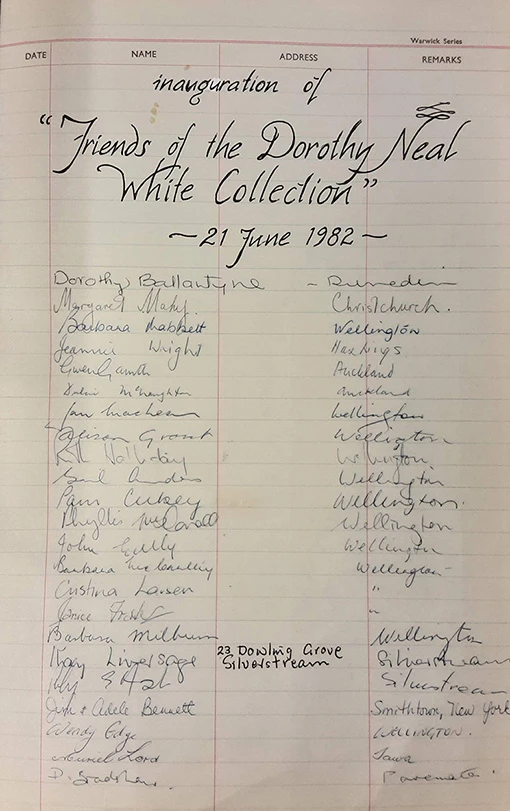 Warwick Series
DATE NAME ADDRESS REMARKS
inauguration of
"Friends of the Dorothy Neal
White Collection"
~ 21 June 1982 ~
Dorothy Ballantyne - Dunedin
Margaret Mahy. Christchurch.
Barbara Mabbett Wellington
Jeannie Wright Hastings
Gwen Auckland
McNaughton Auckland
Ian Wellington
Alison Grant Wellington
Wellington
Wellington
Pam Wellington.
Phyllis Wellington
John Wellington
Barbara Wellington
Cristina Larsen "
"
Barbara Milburn Wellington
Kay Liversage 23 Dowling Grove Silverstream
Silverstream
Silverstream
Jim & Adele Bennett Smithtown, New York
Wendy Edge WELLINGTON.
Muriel Lord Tawa
D. Bradshaw. Paremata.